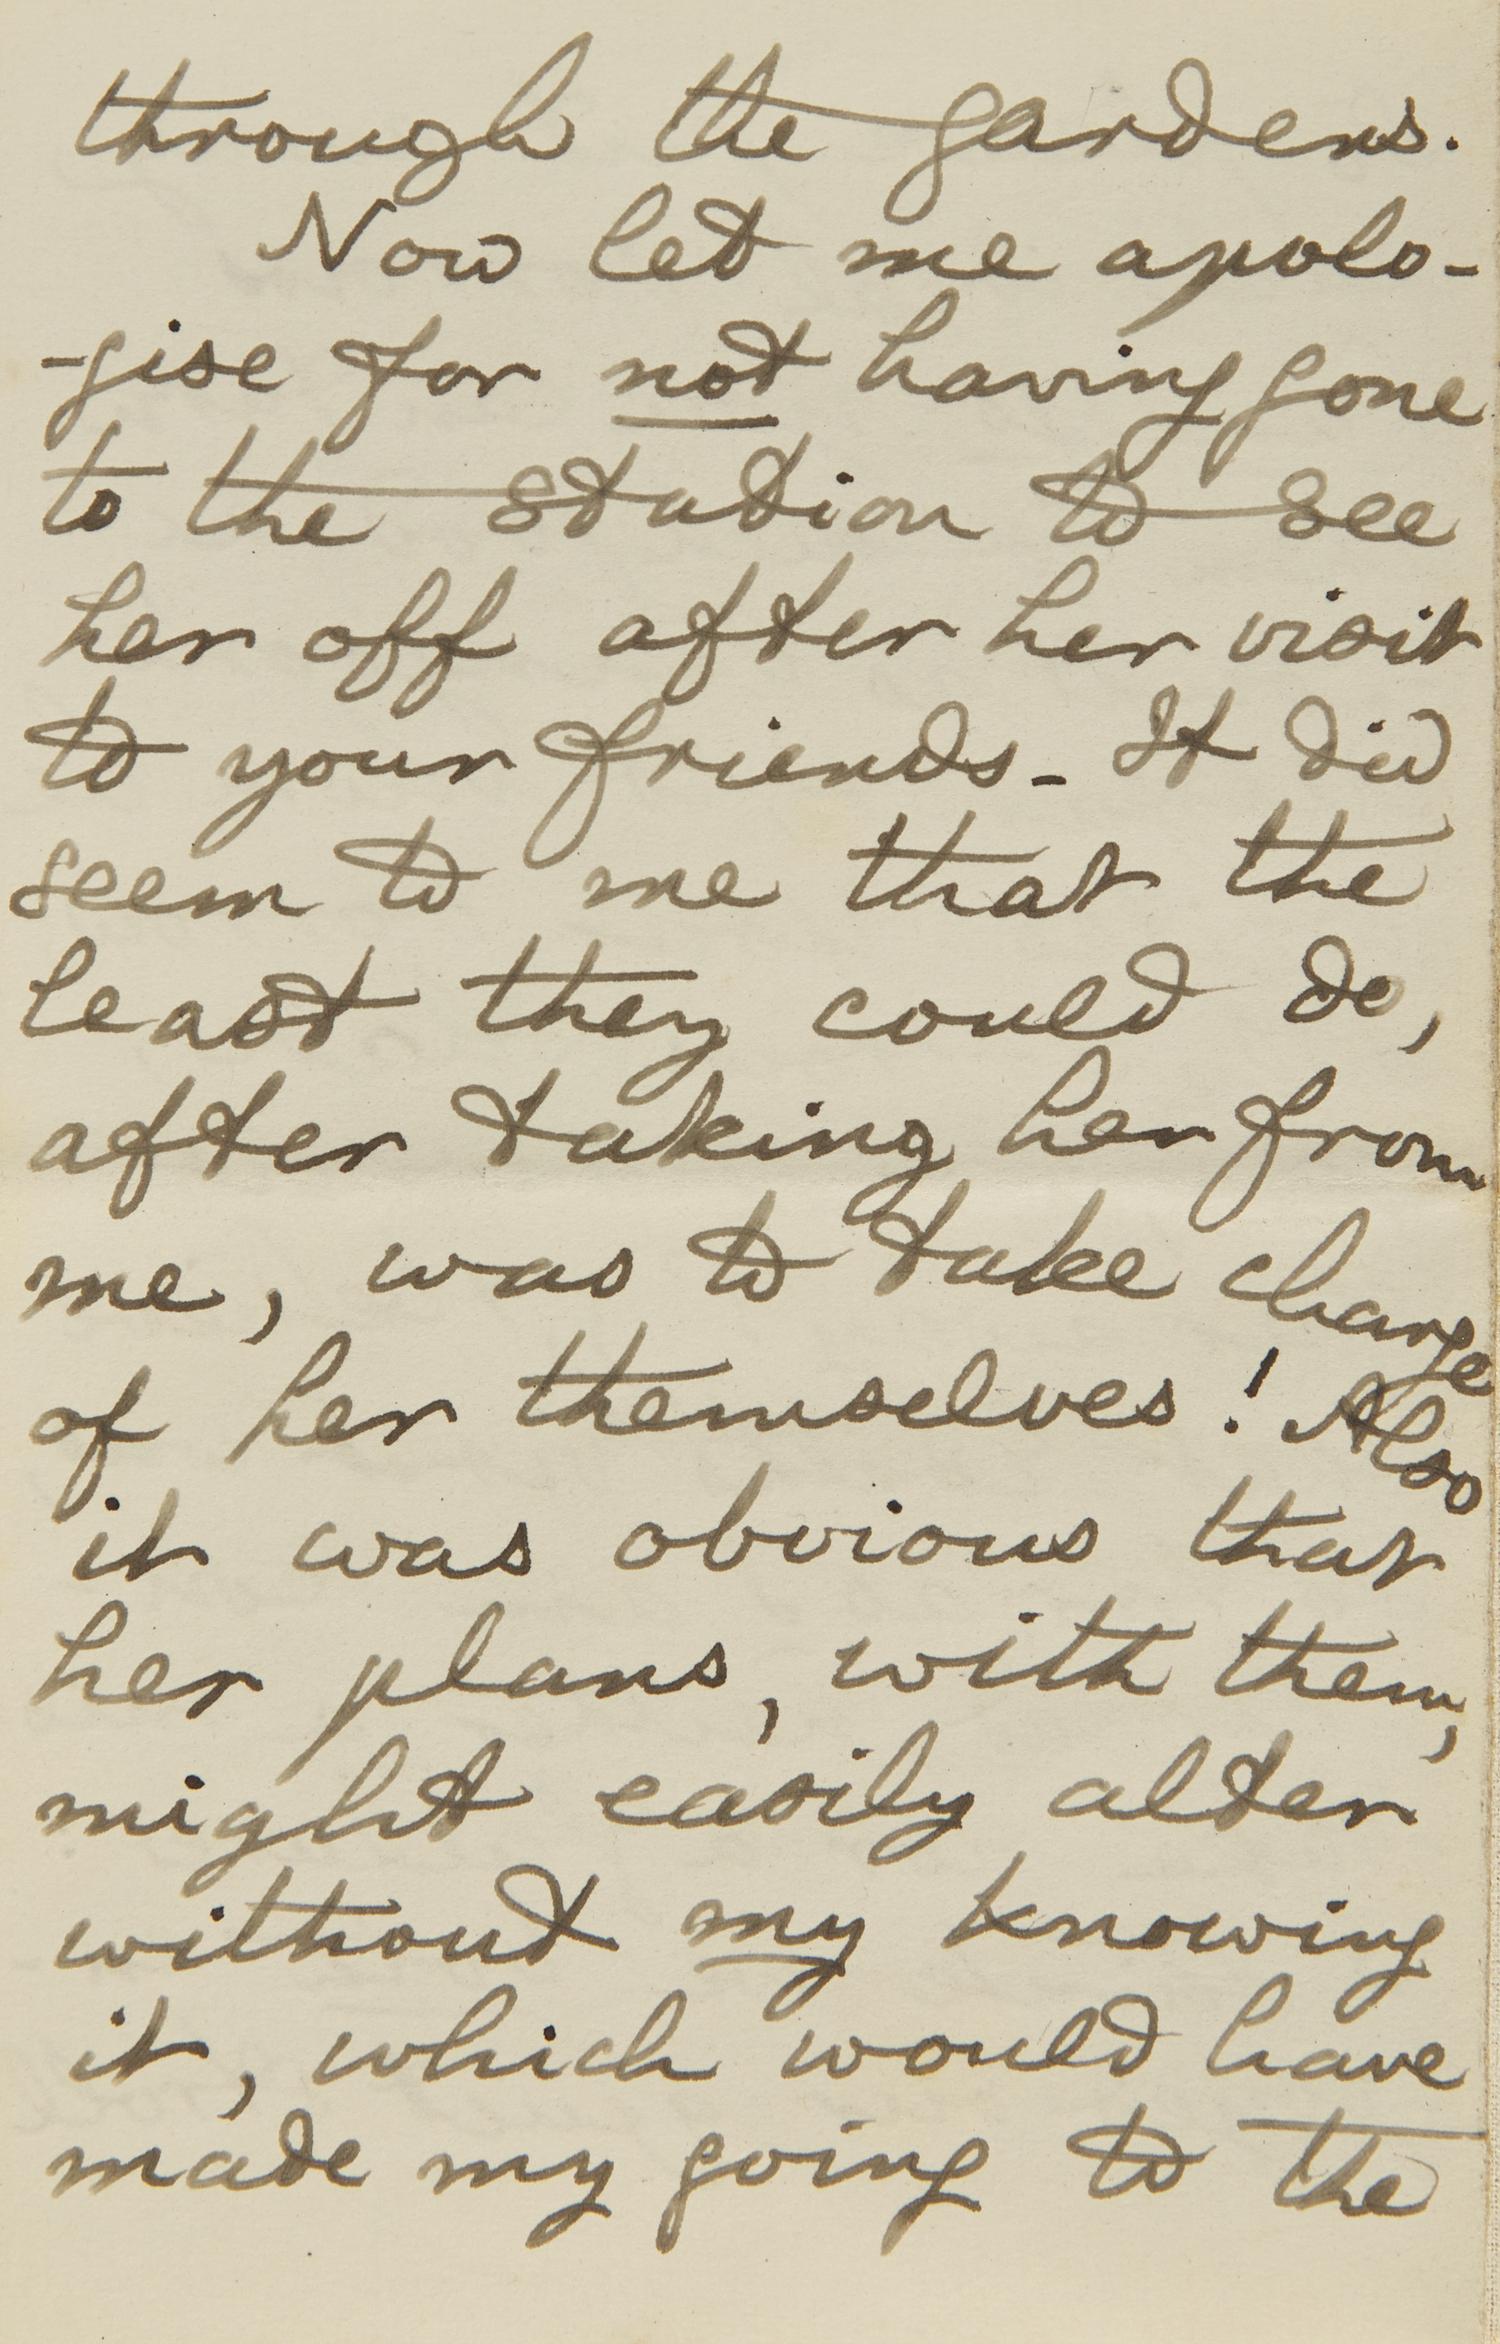 through the gardens.
Now let me apolo-
-gise for not having gone
to the station to see
her off after her visit
to your friends - It did
seem to me that the
least they could do,
after taking her from
me, was to take charge
of her themselves! Also
it was obvious that
her plans, with them,
might easily alter
without my knowing
it, which would have
made my going to the